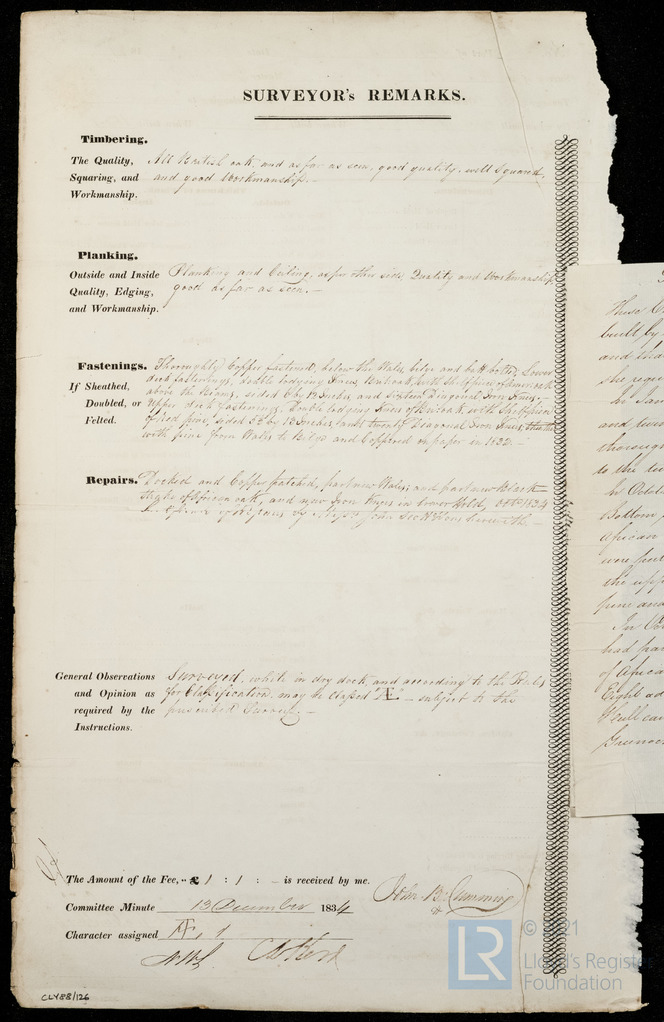 SURVEYOR's REMARKS.
Timbering.
The Quality, Squaring, and Workmanship.
All British oak, and as far as seen, good quality, well squared,
and good Workmanship.—
Planking.
Outside and Inside Quality, Edging, and Workmanship.
Planking and Ceiling, as per other side, Quality and Workmanship
good as far as seen.—
Fastenings.
If Sheathed, Doubled, or Felted.
Thoroughly Copper fastened, below the Wales, bilge and butt bolts, Lower
deck fastenings, double lodging Knees,
above the Beams, sided 6 by 12 Inches, and Sixteen Diagonal Iron Knees.—
Upper deck fastenings, Double lodging Knees of
of red pine, sided by 12 Inches, and twenty Diagonal Iron Knees,
with pine from Wales to Bilge and Coppered on paper in 1832.—
Repairs.
Docked and Copper patched, part new Wales, and part new Black
Strakes of African oak, and new Iron Knees in lower Hold, Octr 1834
General Observations and Opinion as required by the Instructions.
Surveyed, while in dry dock, and according to the Rules
for Classification, may be classed "Æ" — subject to the
prescribed Survey.—
The Amount of the Fee, £ 1 : 1 : — is received by me.
John B. Cumming
Committee Minute 13 December 1834
Character assigned Æ, 1
CLY88/126
These
built by
and
she
and
to the
In Octo
Bottom
African
were
the upp
pine and
had par
of Africa
Eight
LR
© 2021
Lloyd's Register
Foundation